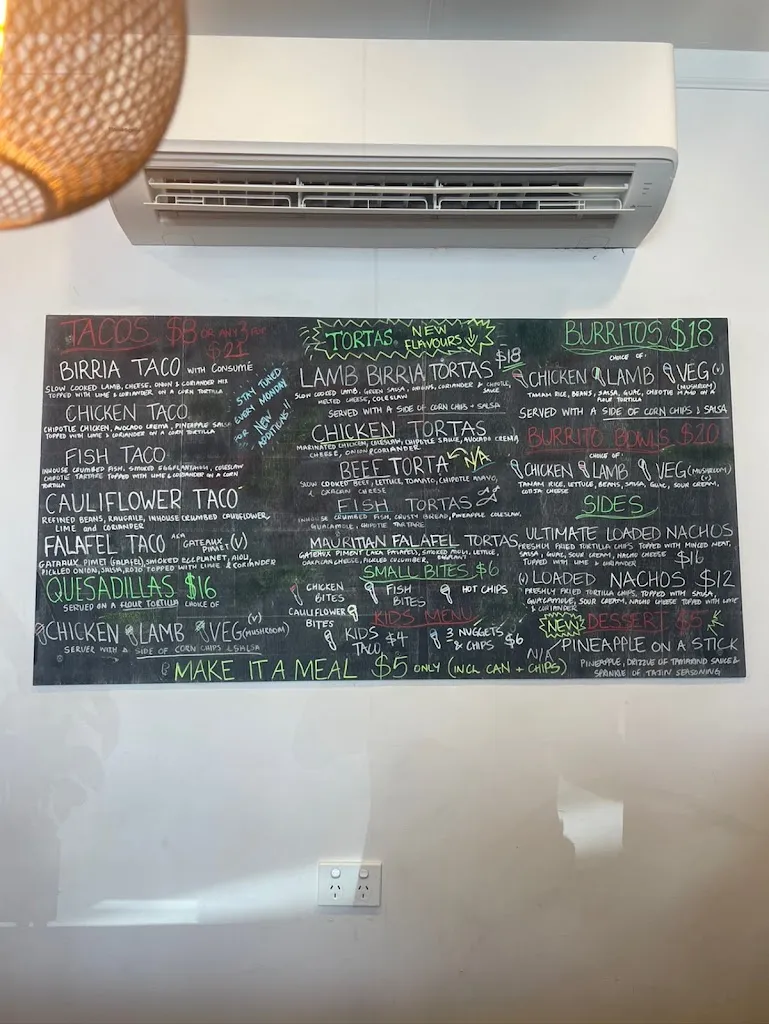 TACOS $8 OR ANY 3 FOR
$21
BIRRIA TACO WITH CONSUMÉ
SLOW COOKED LAMB, CHEESE, ONION & CORIANDER MIX
TOPPED WITH LIME & CORIANDER ON A CORN TORTILLA
CHICKEN TACO
CHIPOTLE CHICKEN, AVOCADO CREMA, PINEAPPLE SALSA
TOPPED WITH LIME & CORIANDER ON A CORN TORTILLA
FISH TACO
INHOUSE CRUMBED FISH, SMOKED EGGPLANT, COLESLAW
CHIPOTLE TARTARE TOPPED WITH LIME & CORIANDER ON A CORN
TORTILLA
CAULIFLOWER TACO
REFINED BEANS, INHOUSE CRUMBED CAULIFLOWER,
LIME and CORIANDER
FALAFEL TACO AKA "GATEAUX PIMET" (V)
GATEAUX PIMET (FALAFEL), SMOKED EGGPLANET, AIOLI,
PICKLED ONION, SALSA TOPPED WITH LIME & CORIANDER
QUESADILLAS $16
SERVED ON A FLOUR TORTILLA CHOICE OF
CHICKEN LAMB VEG (MUSHROOM) (V)
SERVER WITH A SIDE OF CORN CHIPS & SALSA
STAY TUNED
EVERY MONDAY
FOR NEW
ADDITIONS!!
TORTAS NEW
FLAVOURS
LAMB BIRRIA TORTAS $18
SLOW COOKED LAMB, GREEN SALSA, ONIONS, CORIANDER & CHIPOTLE,
MELTED CHEESE, COLE SLAW SAUCE
SERVED WITH A SIDE OF CORN CHIPS + SALSA
CHICKEN TORTAS
MARINATED CHICKEN, COLESLAW, CHIPOTLE SAUCE, AVOCADO CREMA,
CHEESE, ONION & CORIANDER
BEEF TORTA N/A
SLOW COOKED BEEF, LETTUCE, TOMATO, CHIPOTLE MAYO,
& OAXACAN CHEESE
FISH TORTAS
INHOUSE CRUMBED FISH, CRUSTY BREAD, PINEAPPLE COLESLAW,
GUACAMOLE, CHIPOTLE TARTARE
MAURITIAN FALAFEL TORTAS
GATEAUX PIMENT (AKA FALAFEL), SMOKED AIOLI, LETTUCE,
OAXACAN CHEESE, PICKLED CUCUMBER, EGGPLANT
SMALL BITES $6
CHICKEN
BITES
FISH
BITES
HOT CHIPS
CAULIFLOWER
BITES
KIDS MENU
KIDS
TACO $4
3 NUGGETS
& CHIPS $6
BURRITOS $18
CHOICE OF:
CHICKEN LAMB VEG (V)
(MUSHROOM)
RICE, BEANS, SALSA, GUAC, CHIPOTLE MAYO IN A
FLOUR TORTILLA
SERVED WITH A SIDE OF CORN CHIPS & SALSA
BURRITO BOWLS $20
CHOICE OF:
CHICKEN LAMB VEG (MUSHROOM) (V)
RICE, LETTUCE, BEANS, SALSA, GUAC, SOUR CREAM,
COTIJA CHEESE
SIDES
ULTIMATE LOADED NACHOS
FRESHLY FRIED TORTILLA CHIPS TOPPED WITH MINCED MEAT,
SALSA, GUAC, SOUR CREAM, NACHO CHEESE TOPPED WITH
TOPPED WITH LIME & CORIANDER $16
(V) LOADED NACHOS $12
FRESHLY FRIED TORTILLA CHIPS, TOPPED WITH SALSA,
GUACAMOLE, SOUR CREAM, NACHO CHEESE TOPPED WITH LIME
& CORIANDER
NEW DESSERT $5
N/A PINEAPPLE ON A STICK
PINEAPPLE, DRIZZLE OF TAMARIND SAUCE &
SPRINKLE OF TAJIN SEASONING
MAKE IT A MEAL $5 ONLY (INCL CAN + CHIPS)